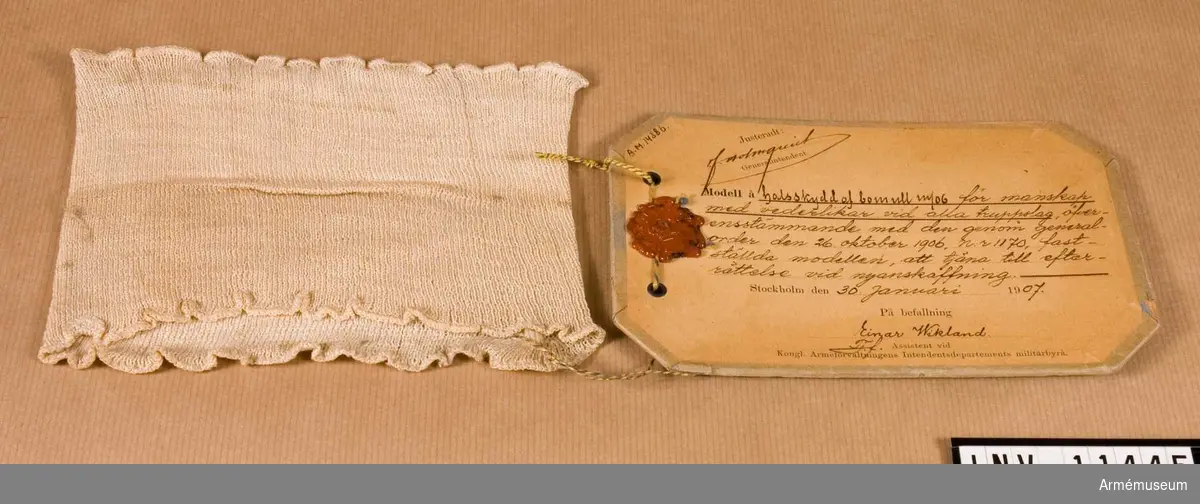 A.M. 14886.
Justeradt:
Generalintendent
Modell å halsskydd af bomull m/06 för manskap
med vederlikar vid alla truppslag, öfver-
ensstämmande med den genom general-
order den 26 oktober 1906, n:r 1170, fast-
ställda modellen, att tjäna till efter-
rättelse vid nyanskaffning.
Stockholm den 30 januari 1907.
På befallning
Einar Wikland.
Tf. Assistent vid
Kongl. Arméförvaltningens Intendentsdepartements militärbyrå.
INV 11445
Armémuseum